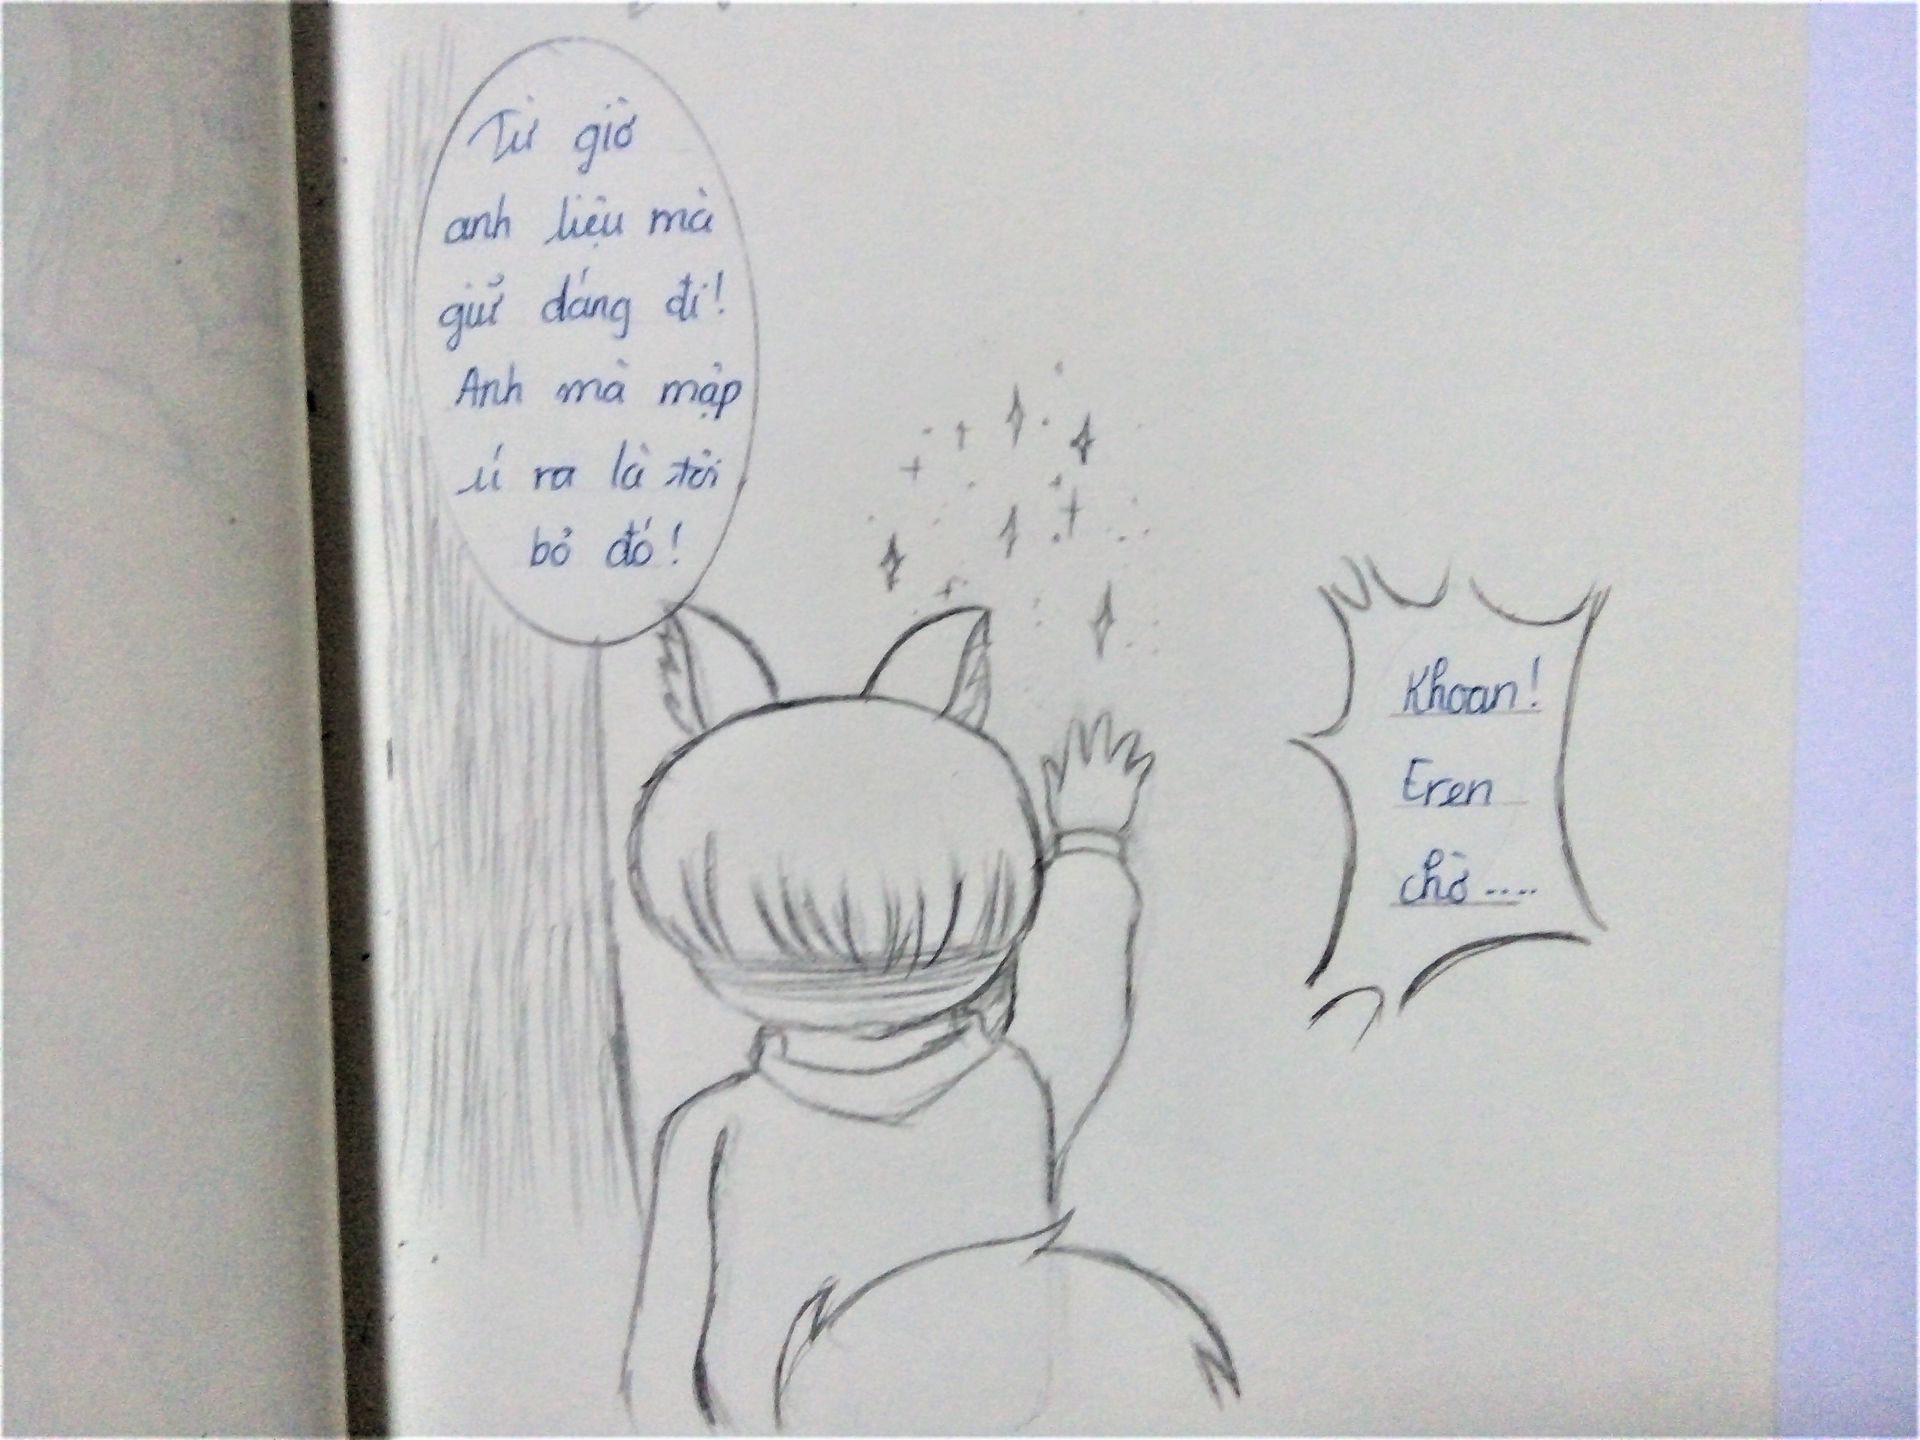 Từ giờ
anh liệu mà
giữ dáng đi!
Anh mà mập
ú ra là tôi
bỏ đó!
Khoan!
Eren
chờ....